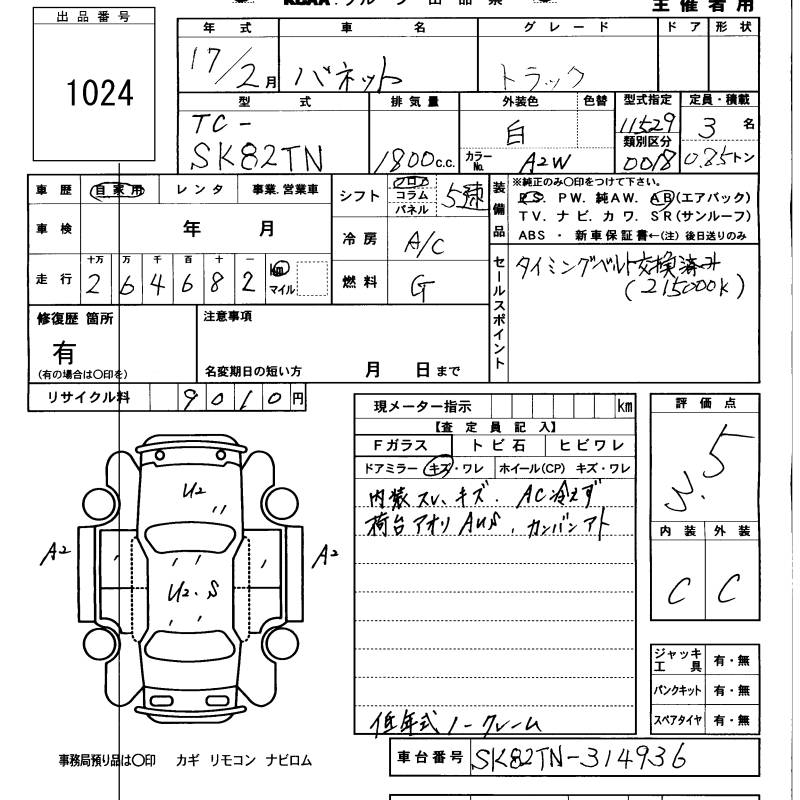 主催者用
出品番号
1024
年式 車名 グレード ドア 形状
17/2月 バネット トラック
型式 排気量 外装色 色替 型式指定 定員・積載
TC-
SK82TN 1800c.c. 白 11529 3名
類別区分
カラーNo. A2W 0018 0.85トン
車歴 自家用 レンタ 事業.営業車
車検 年 月
十万 万 千 百 十 一
走行 2 6 4 6 8 2 km マイル
シフト フロア コラム パネル 5速
冷房 A/C
燃料 G
装備品 ※純正のみ○印をつけて下さい。
P.S. PW. 純AW. AB(エアバック)
TV. ナビ. カワ. SR(サンルーフ)
ABS ・ 新車保証書←(注)後日送りのみ
セールスポイント
タイミングベルト交換済み
(215000k)
修復歴 箇所
有
(有の場合は○印を)
注意事項
名変期日の短い方 月 日まで
リサイクル料 9010円
現メーター指示 km
【査定員記入】
Fガラス トビ石 ヒビワレ
ドアミラー キズ・ワレ ホイール(CP) キズ・ワレ
内装スレ、キズ. AC冷えず
荷台アオリ AUS. カンバンアト
低年式ノークレーム
評価点
3.5
内装 外装
C C
U2
A2 A2
U2.S
ジャッキ工具 有・無
パンクキット 有・無
スペアタイヤ 有・無
事務局預り品は○印 カギ リモコン ナビロム
車台番号 SK82TN-314936